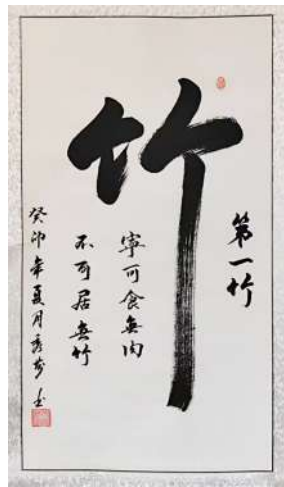 竹
第一竹
寧可食無肉
不可居無竹
癸卯年夏月